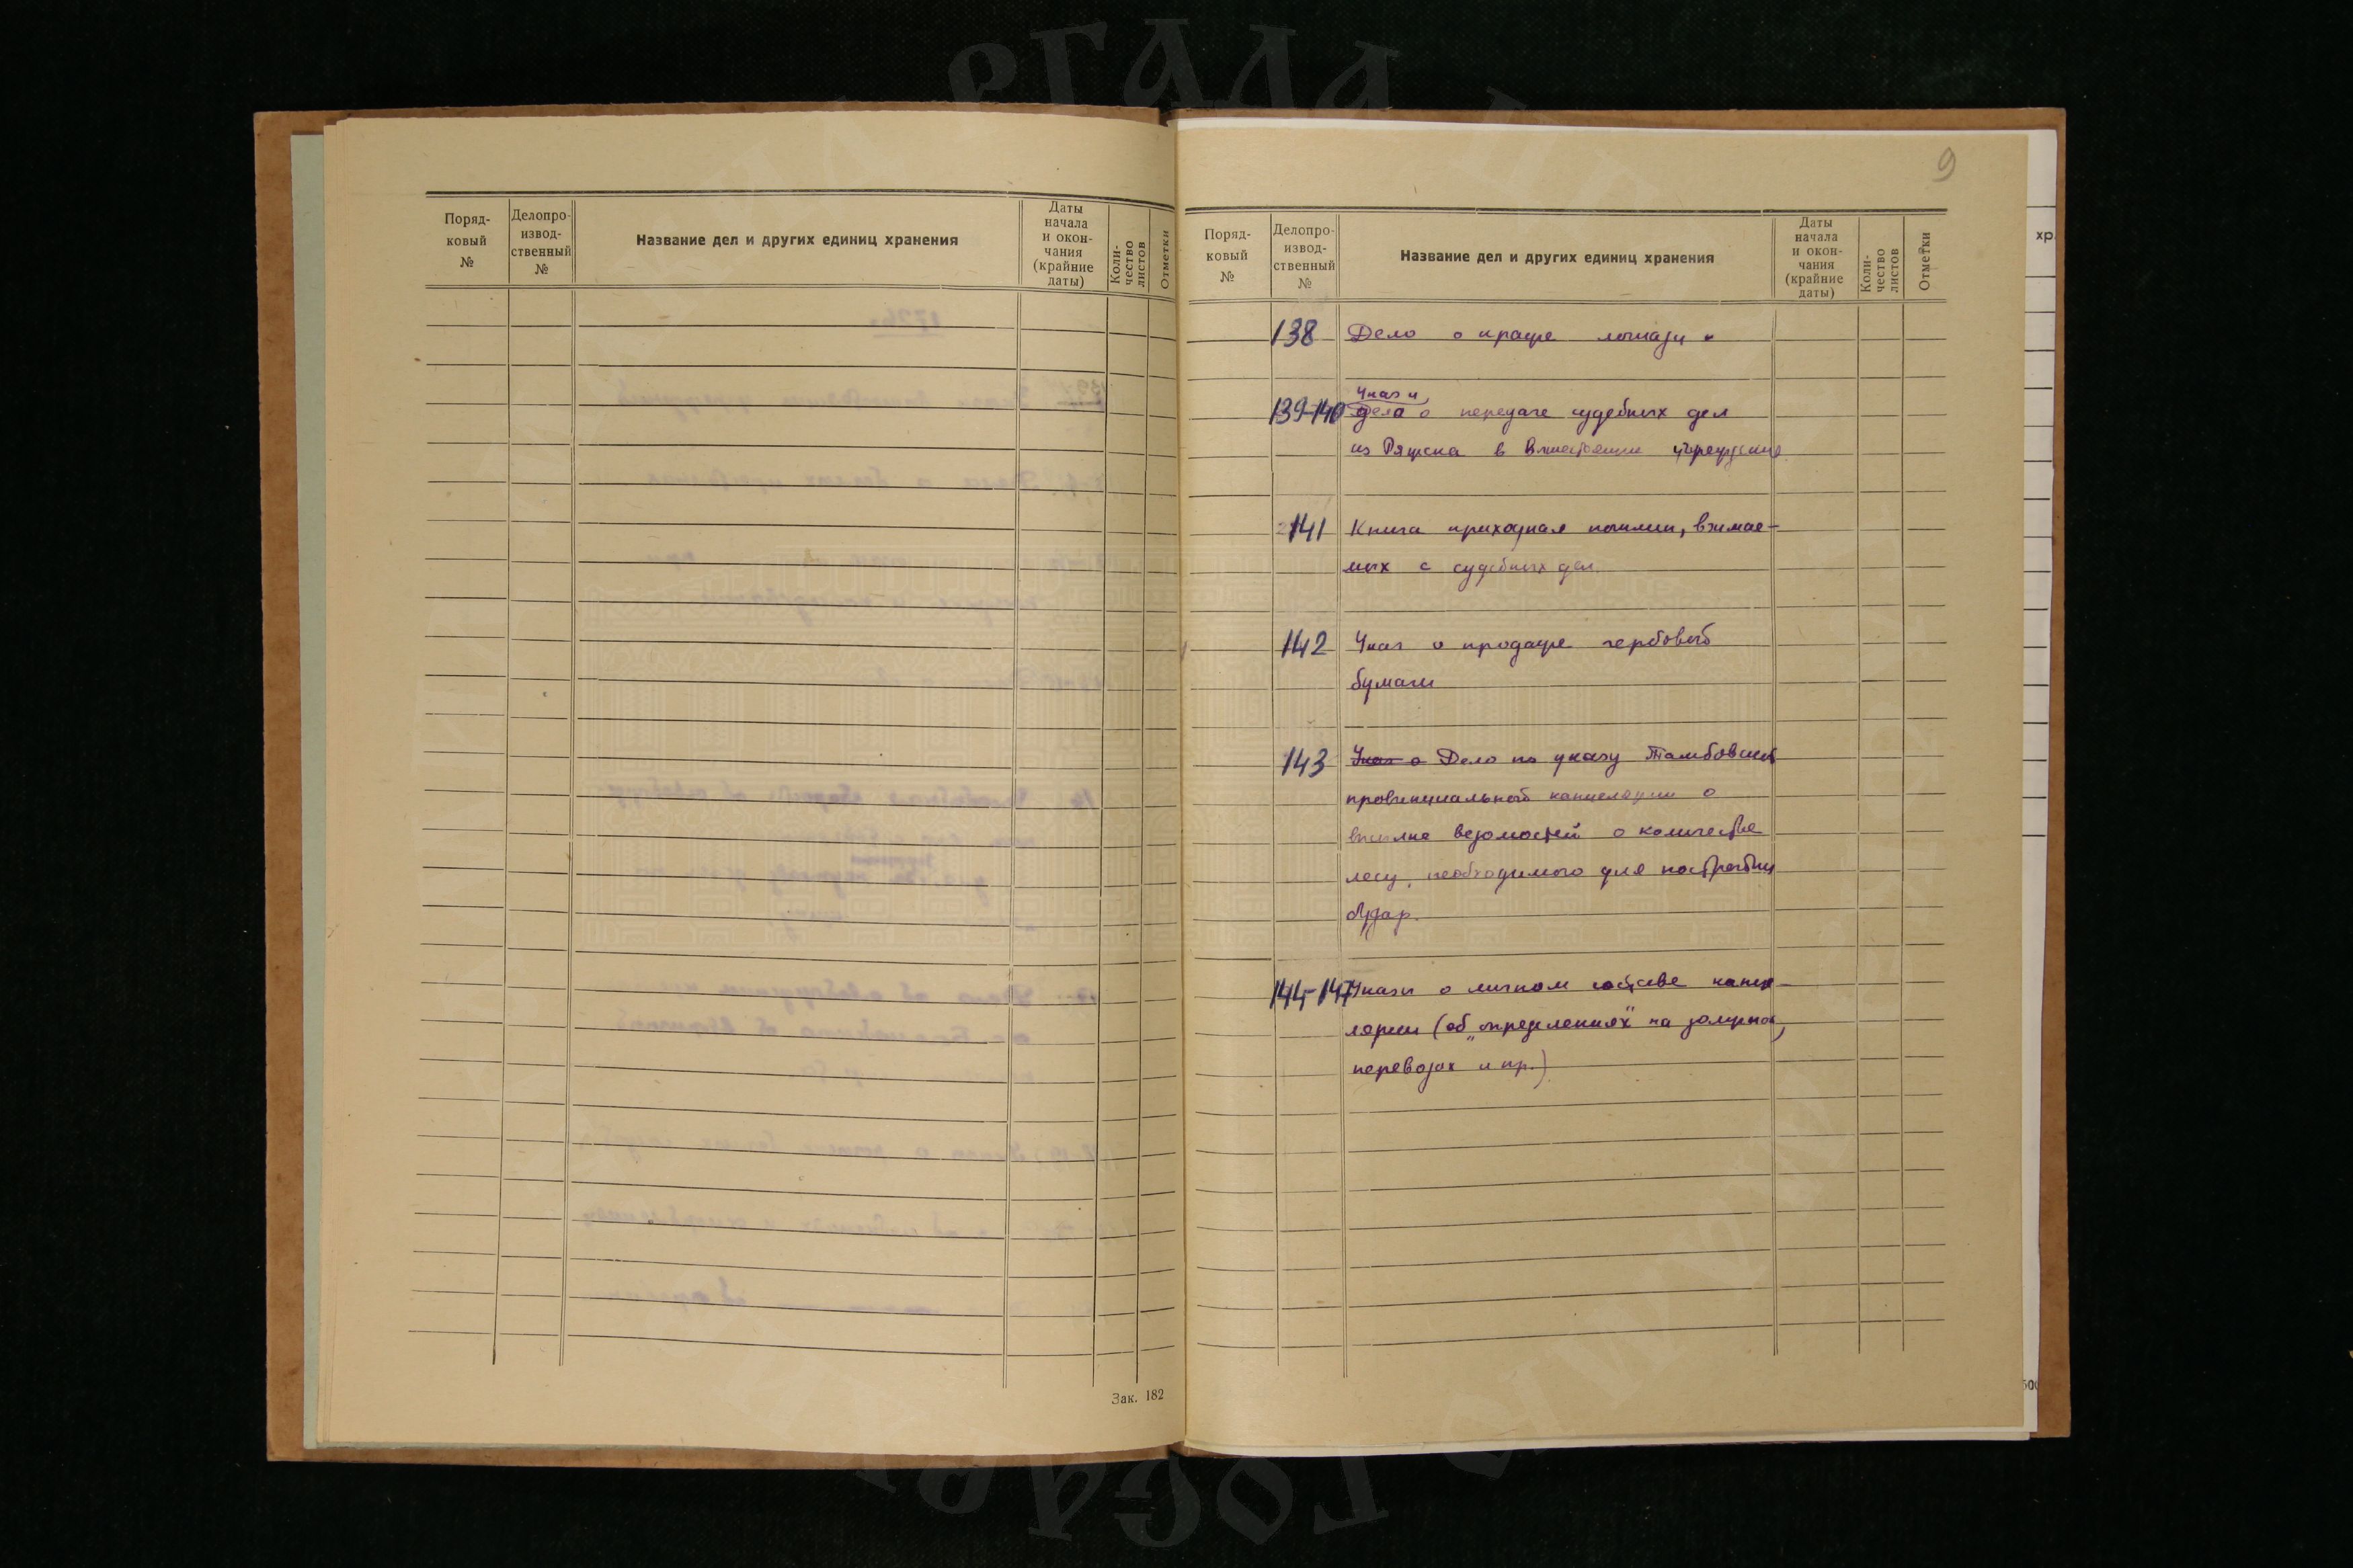 Поряд-
ковый
№
Делопро-
извод-
ственный
№
Название дел и других единиц хранения
Даты
начала
и окон-
чания
(крайние
даты)
Коли-
чество
листов
Отметки
Зак. 182
9
Поряд-
ковый
№
Делопро-
извод-
ственный
№
Название дел и других единиц хранения
Даты
начала
и окон-
чания
(крайние
даты)
Коли-
чество
листов
Отметки
138 Дело о краже лошади
Указ и
139-140 дела о передаче судебных дел
из Ряжска в
141 Книга приходная пошлин, взимае-
мых с судебных дел.
142 Указ о продаже гербовой
бумаги
143 Указ о Дело по указу Тамбовской
провинциальной канцелярии о
высылке ведомостей о количестве
лесу, необходимого для постройки
144-147 Указы о личном составе канце-
лярии (об „определениях" на должность,
переводах и пр.)
хр.